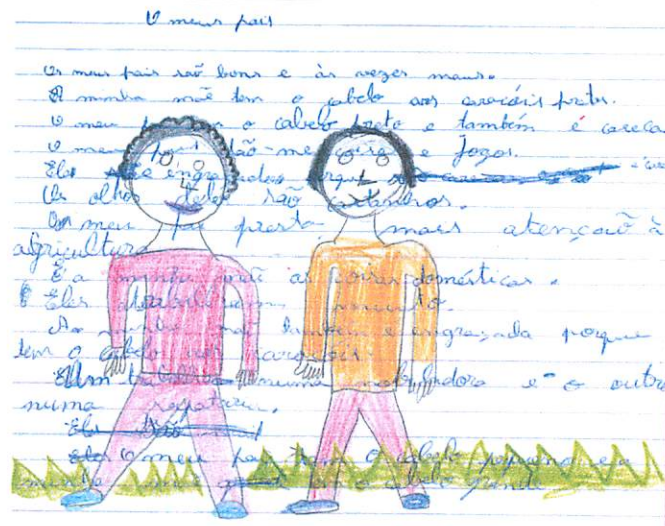 O meus pais
Os meus pais são bons e às vezes maus.
A minha mãe tem o cabelo aos caracóis pretos.
O meu o cabelo preto e também é careca
O meu pai dão-me e jogos.
Ele engraçado
Os olhos deles são castanhos.
O meu pai presta mais atenção à
agricultura
E a minha mãe as coisas domésticas.
Eles
A minha mãe também é engraçada porque
tem o cabelo aos caracóis
Um trabalha numa e o outro
numa
Ele são
O meu pai tem o cabelo pequeno e a
minha mãe tem o cabelo grande